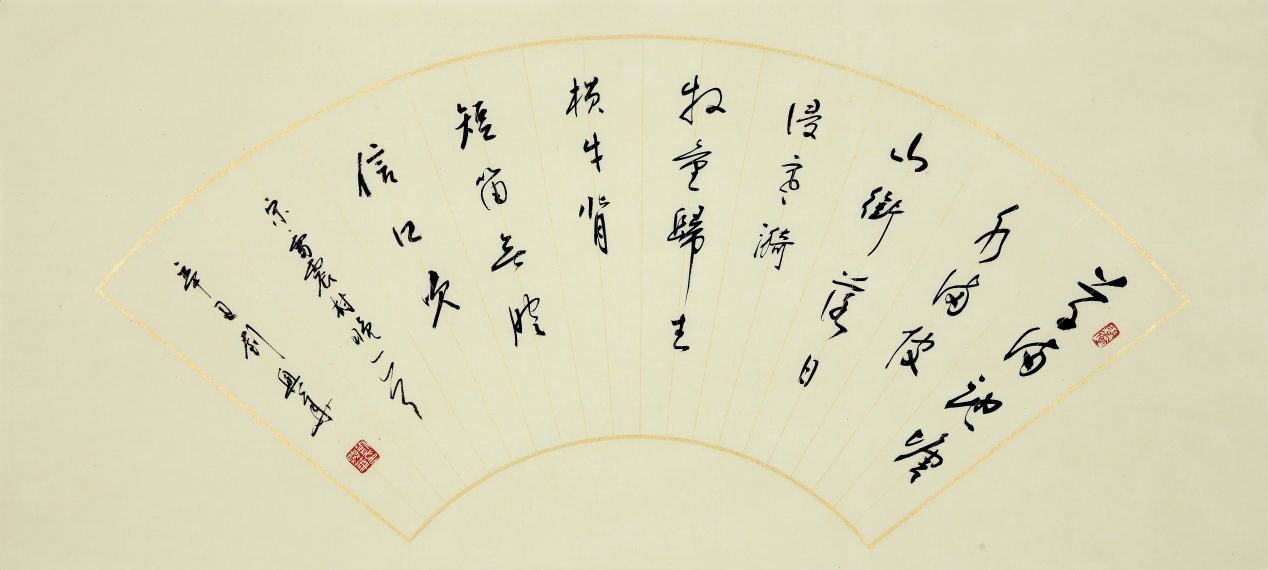 草满池塘
水满陂
山衔落日
浸寒漪
牧童归去
横牛背
短笛无腔
信口吹
宋雷震村晚一首
辛丑刘